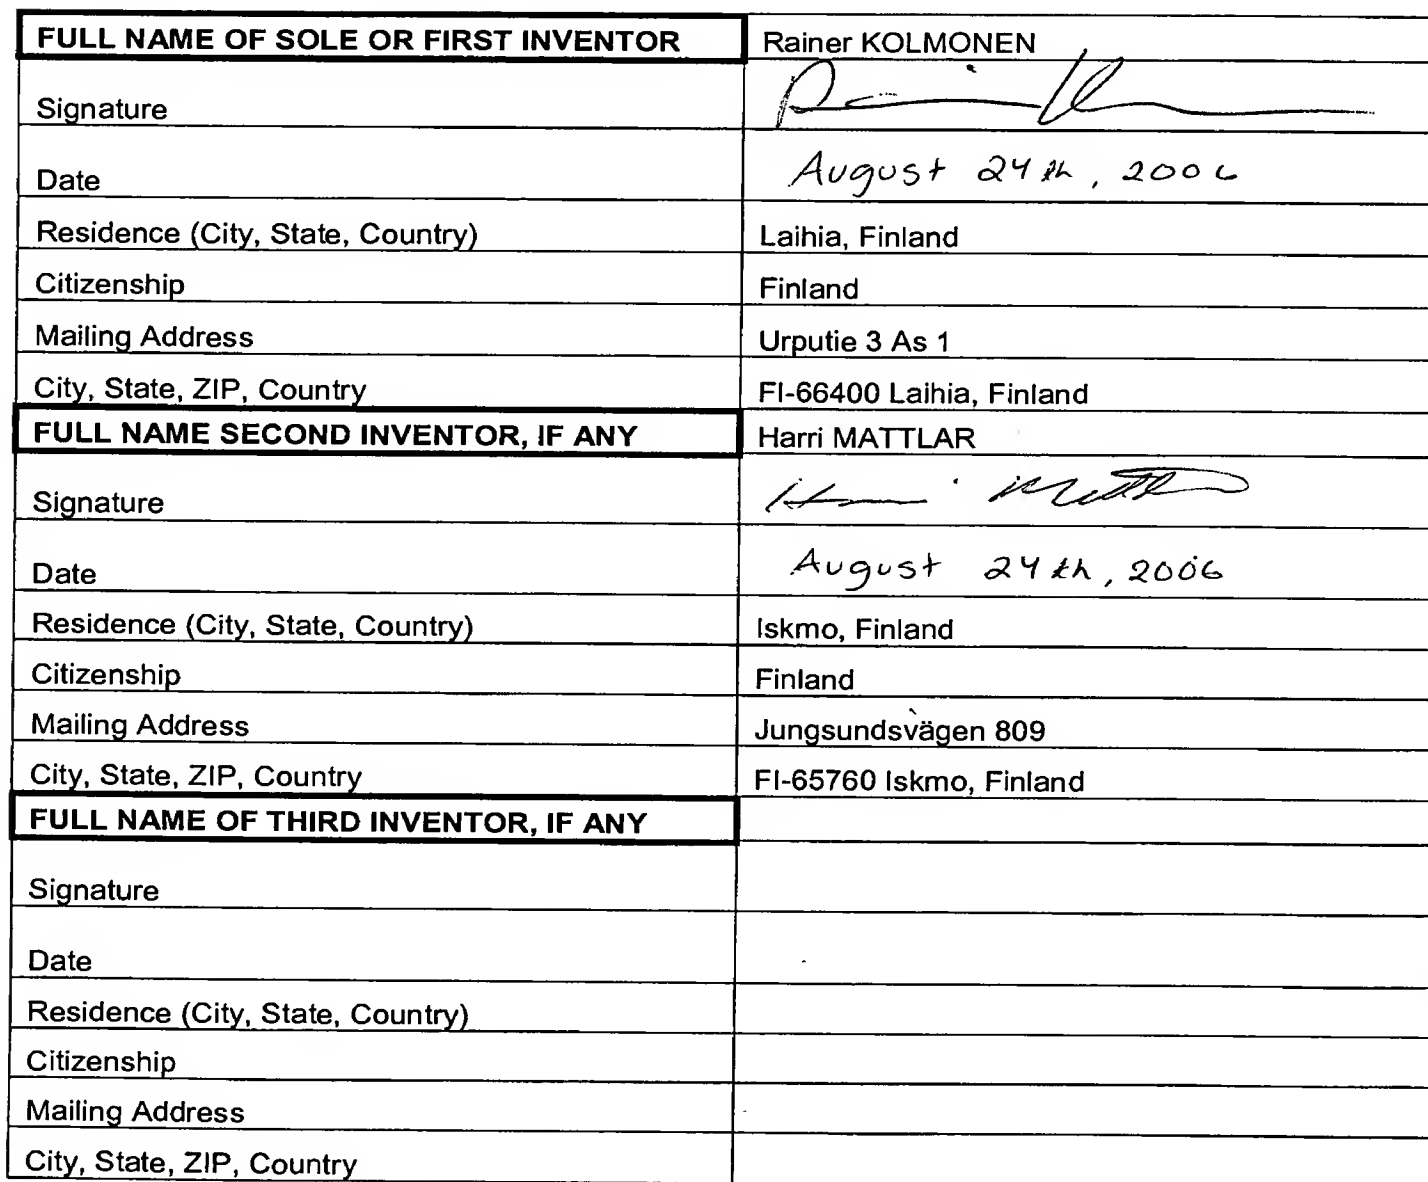 FULL NAME OF SOLE OR FIRST INVENTOR Rainer KOLMONEN
Signature
Date August 24th, 2006
Residence (City, State, Country) Laihia, Finland
Citizenship Finland
Mailing Address Urputie 3 As 1
City, State, ZIP, Country FI-66400 Laihia, Finland
FULL NAME SECOND INVENTOR, IF ANY Harri MATTLAR
Signature
Date August 24th, 2006
Residence (City, State, Country) Iskmo, Finland
Citizenship Finland
Mailing Address Jungsundsvägen 809
City, State, ZIP, Country FI-65760 Iskmo, Finland
FULL NAME OF THIRD INVENTOR, IF ANY
Signature
Date
Residence (City, State, Country)
Citizenship
Mailing Address
City, State, ZIP, Country